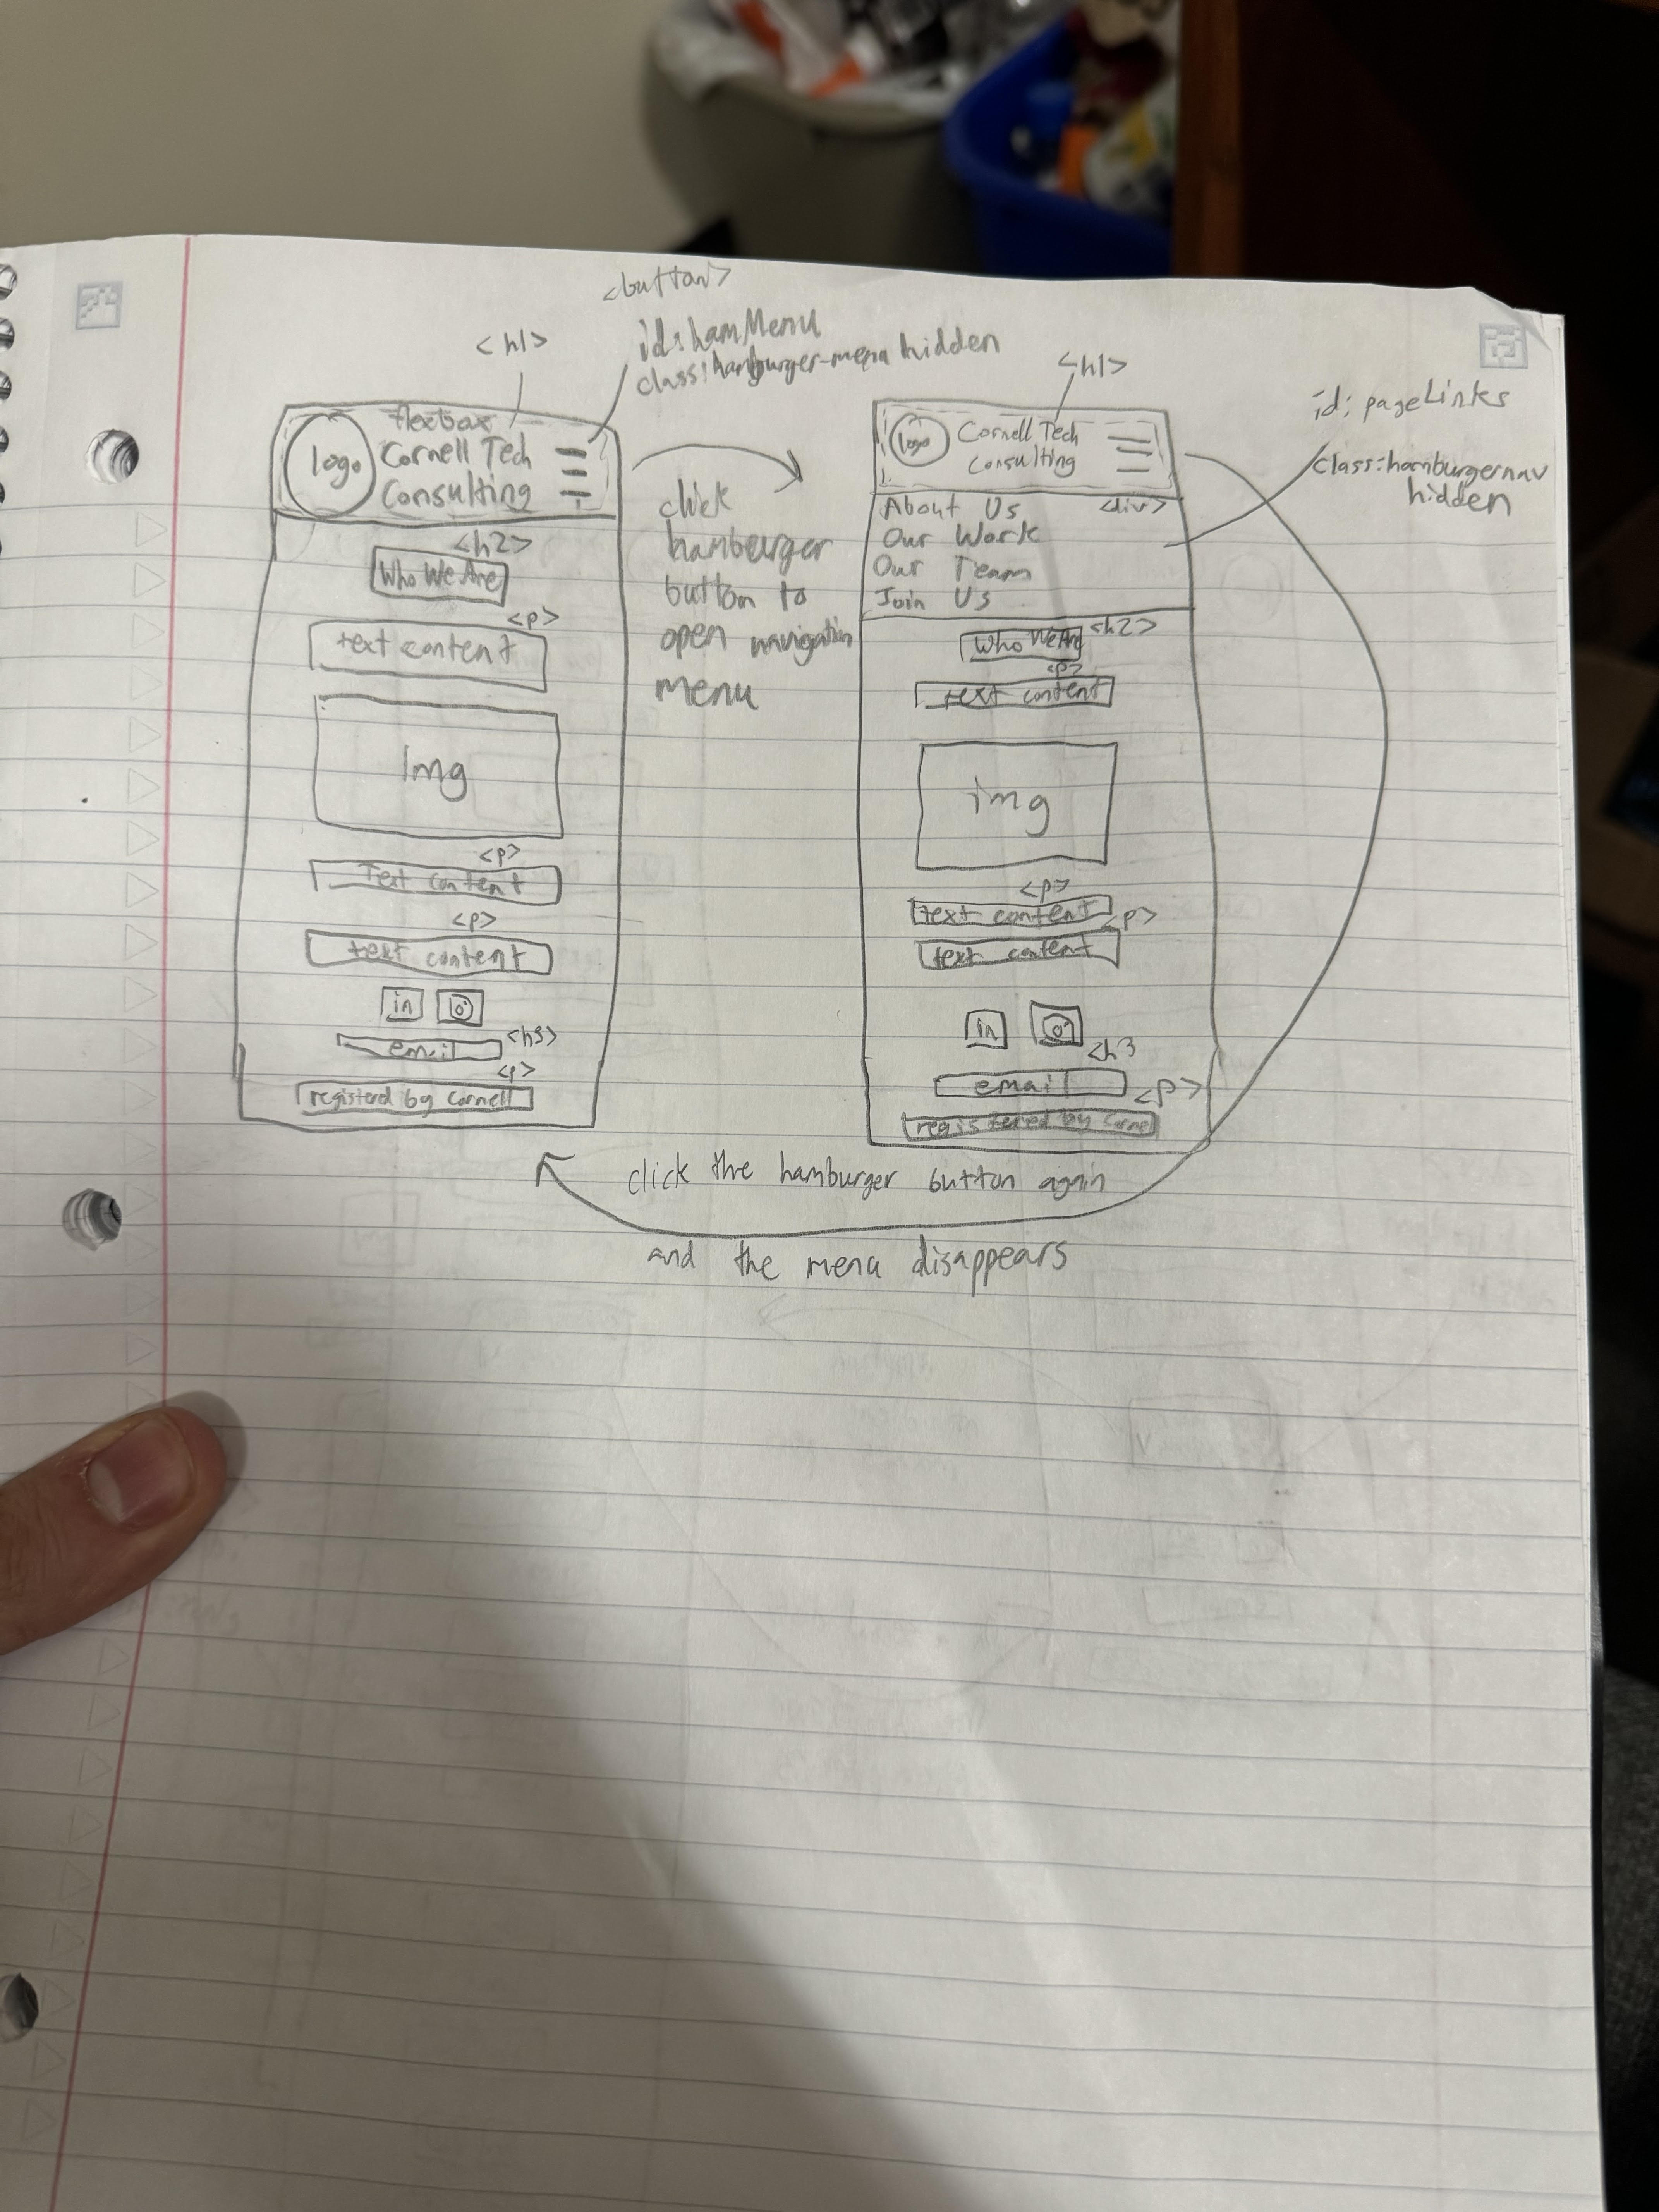 <button>
<h1>
id:hamMenu
class:hamburger-menu hidden
flexbox
logo
Cornell Tech
Consulting
<h2>
Who We Are
<p>
text content
Img
<p>
Text content
<p>
text content
in
<h3>
email
<p>
registerd by Cornell
click
hamburger
button to
open navigation
menu
<h1>
id: pageLinks
class:hamburgernav
hidden
logo
Cornell Tech
Consulting
About Us <div>
Our Work
Our Team
Join Us
Who We Are <h2>
<p>
text content
img
<p>
text content
<p>
text content
in
<h3
email
<p>
registered by Cornel
click the hamburger button again
and the menu disappears